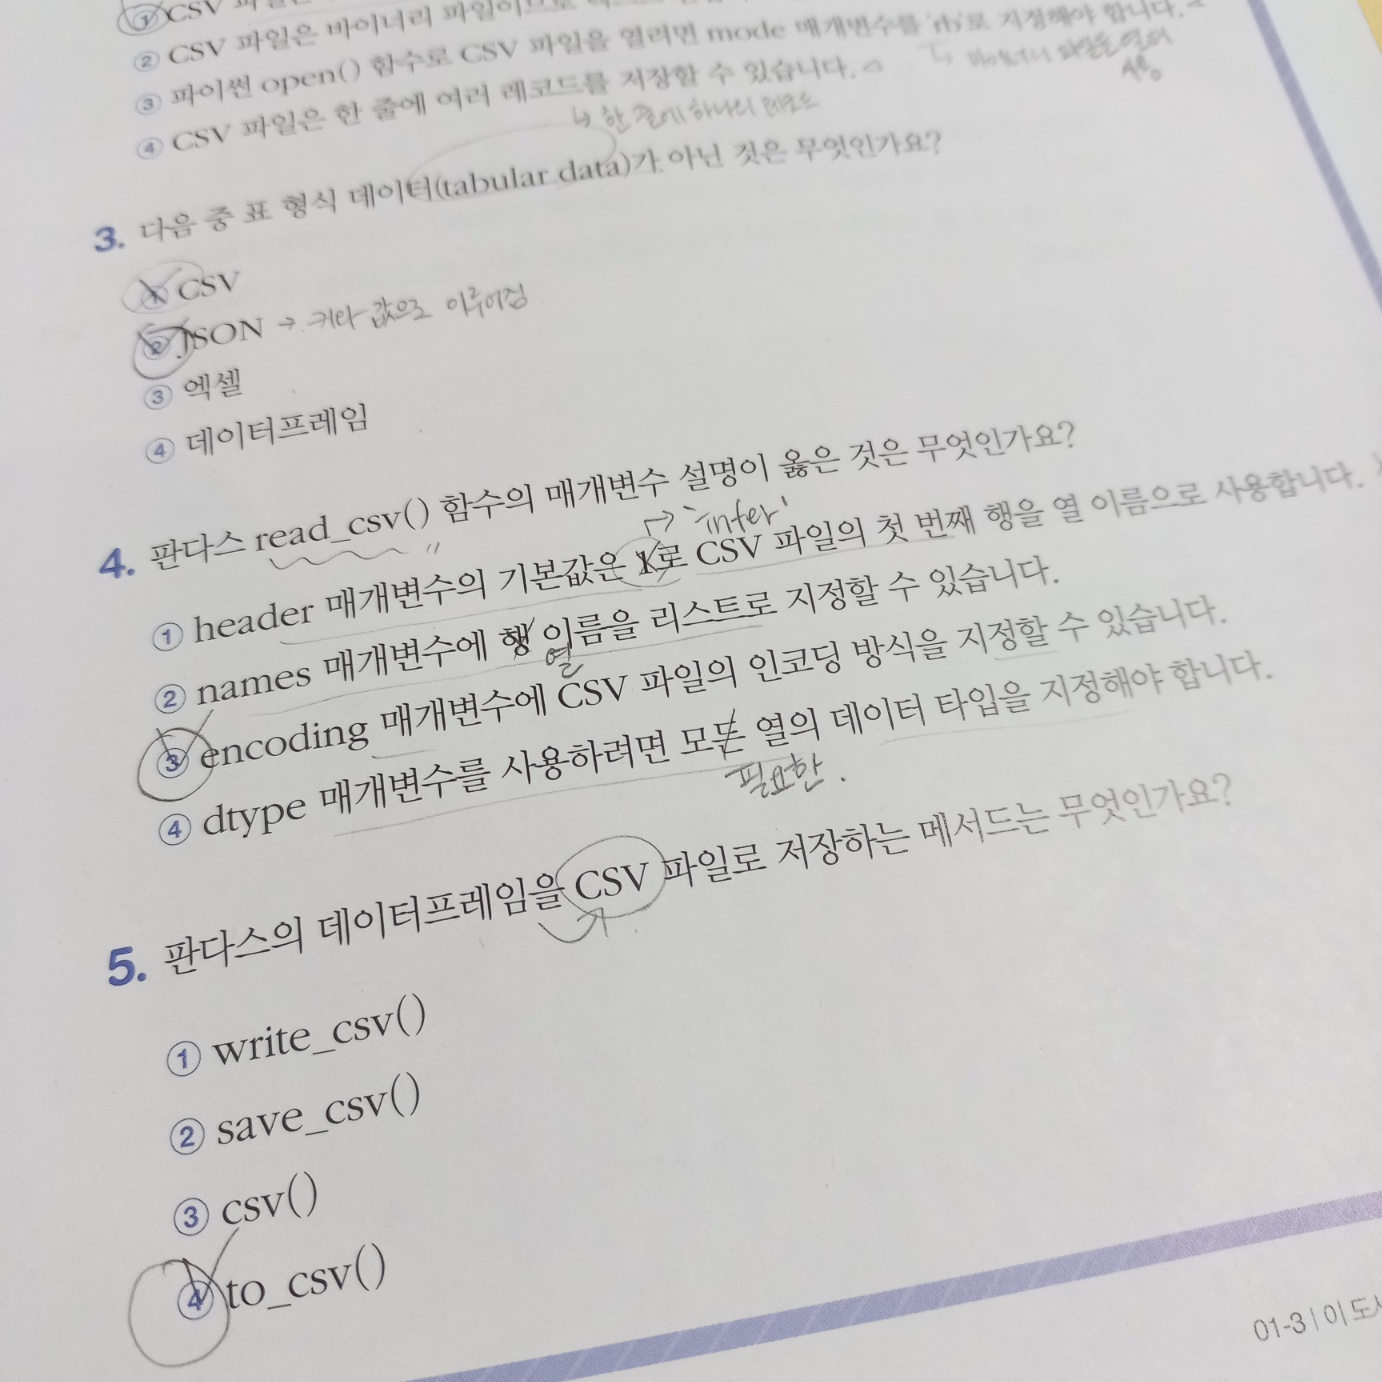 ① CSV 파일은
② CSV 파일은 바이너리 파일이므로
③ 파이썬 open() 함수로 CSV 파일을 열려면 mode 매개변수를 'rb'로 지정해야 합니다.
④ CSV 파일은 한 줄에 여러 레코드를 저장할 수 있습니다.
↳ 한 줄에 하나의 레코드
3. 다음 중 표 형식 데이터(tabular data)가 아닌 것은 무엇인가요?
① CSV
② JSON → 키와 값으로 이루어짐
③ 엑셀
④ 데이터프레임
4. 판다스 read_csv() 함수의 매개변수 설명이 옳은 것은 무엇인가요?
↱ 'infer'
① header 매개변수의 기본값은 1로 CSV 파일의 첫 번째 행을 열 이름으로 사용합니다.
② names 매개변수에 행 이름을 리스트로 지정할 수 있습니다.
열
③ encoding 매개변수에 CSV 파일의 인코딩 방식을 지정할 수 있습니다.
④ dtype 매개변수를 사용하려면 모든 열의 데이터 타입을 지정해야 합니다.
필요한
5. 판다스의 데이터프레임을 CSV 파일로 저장하는 메서드는 무엇인가요?
① write_csv()
② save_csv()
③ csv()
④ to_csv()
01-3 | 이 도서